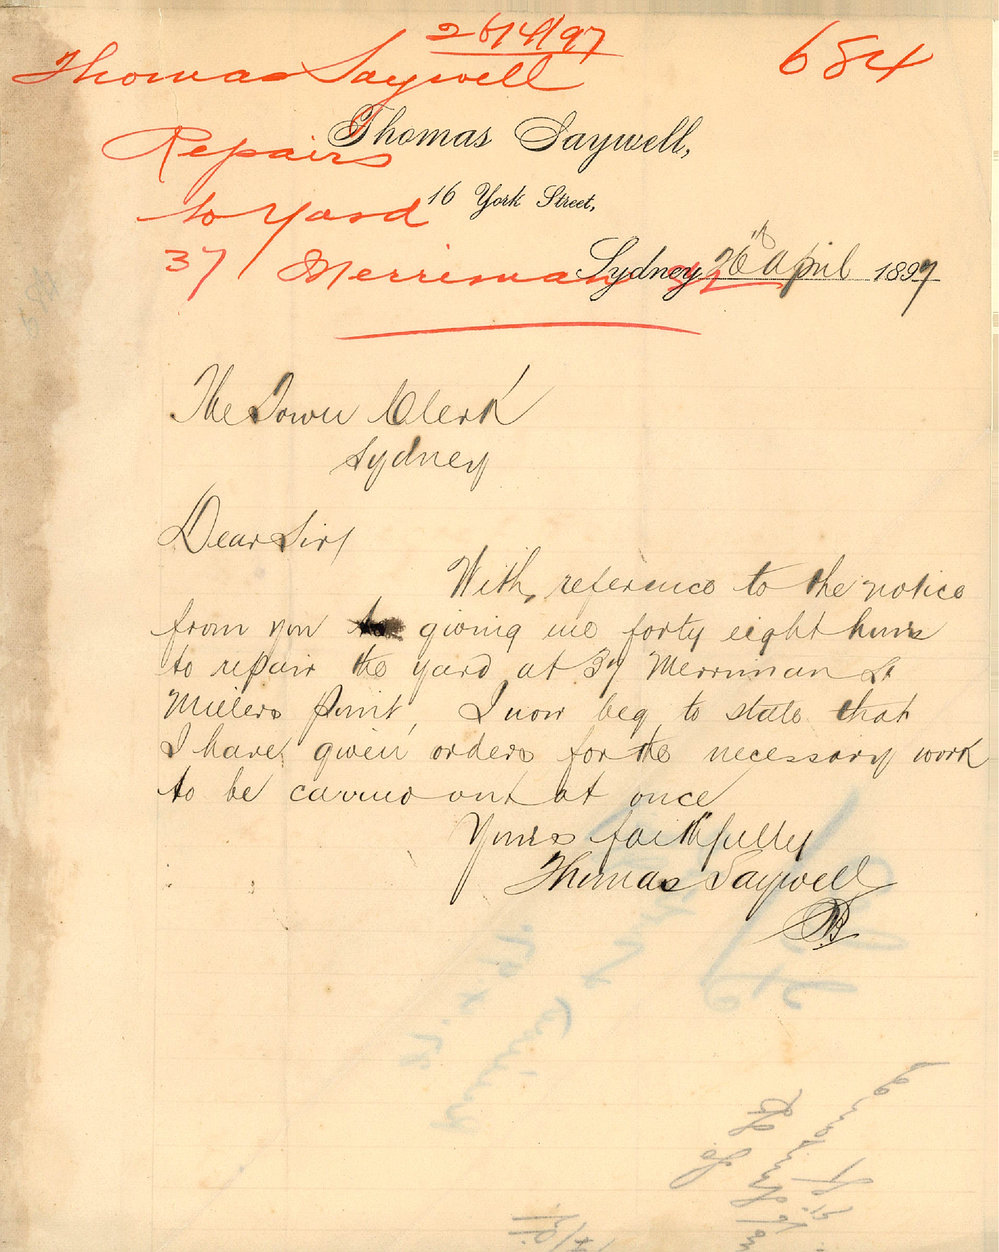 26/4/97
684
Thomas Saywell
Repairs
to Yard
37 Merriman St
Thomas Saywell,
16 York Street,
Sydney 26th April 1897
The Town Clerk
Sydney
Dear Sir/
With reference to the notice
from you giving me forty eight hours
to repair the yard at 37 Merriman St
Millers Point, I now beg to state that
I have given orders for the necessary work
to be carried out at once
Yours faithfully
Thomas Saywell